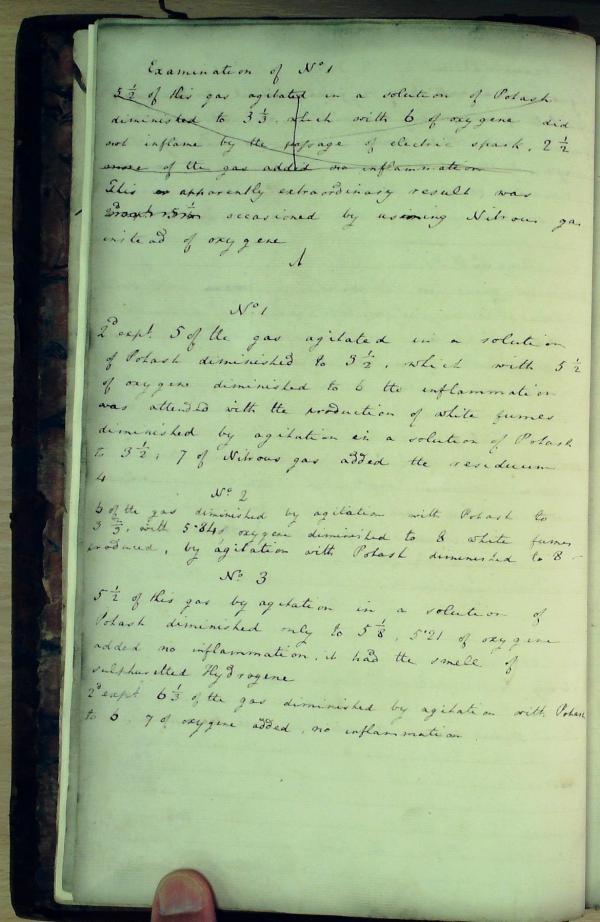 Examination of No 1
5 1/2 of this gas agitated in a solution of Potash
diminished to 3 1/3. which with 6 of oxygene did
not inflame by the passage of electric spark. 2 1/2
more of the gas added no inflammation
This apparently extraordinary result was
occasioned by using Nitrous gas
instead of oxygene
No 1
2d expt. 5 of the gas agitated in a solution
of Potash diminished to 3 1/2, which with 5 1/2
of oxygene diminished to 6 the inflammation
was attended with the production of white fumes
diminished by agitation in a solution of Potash
to 3 1/2; 7 of Nitrous gas added the residuum
4
No 2
6 of the gas diminished by agitation with Potash to
3 2/3, with 5.84 of oxygene diminished to 8 white fumes
produced, by agitation with Potash diminished to 8 -
No 3
5 1/2 of this gas by agitation in a solution of
Potash diminished only to 5 1/8, 5.21 of oxygene
added no inflammation, it had the smell of
sulphuretted Hydrogene
2d expt 6 1/3 of the gas diminished by agitation with Potash
to 6. 7 of oxygene added, no inflammation.